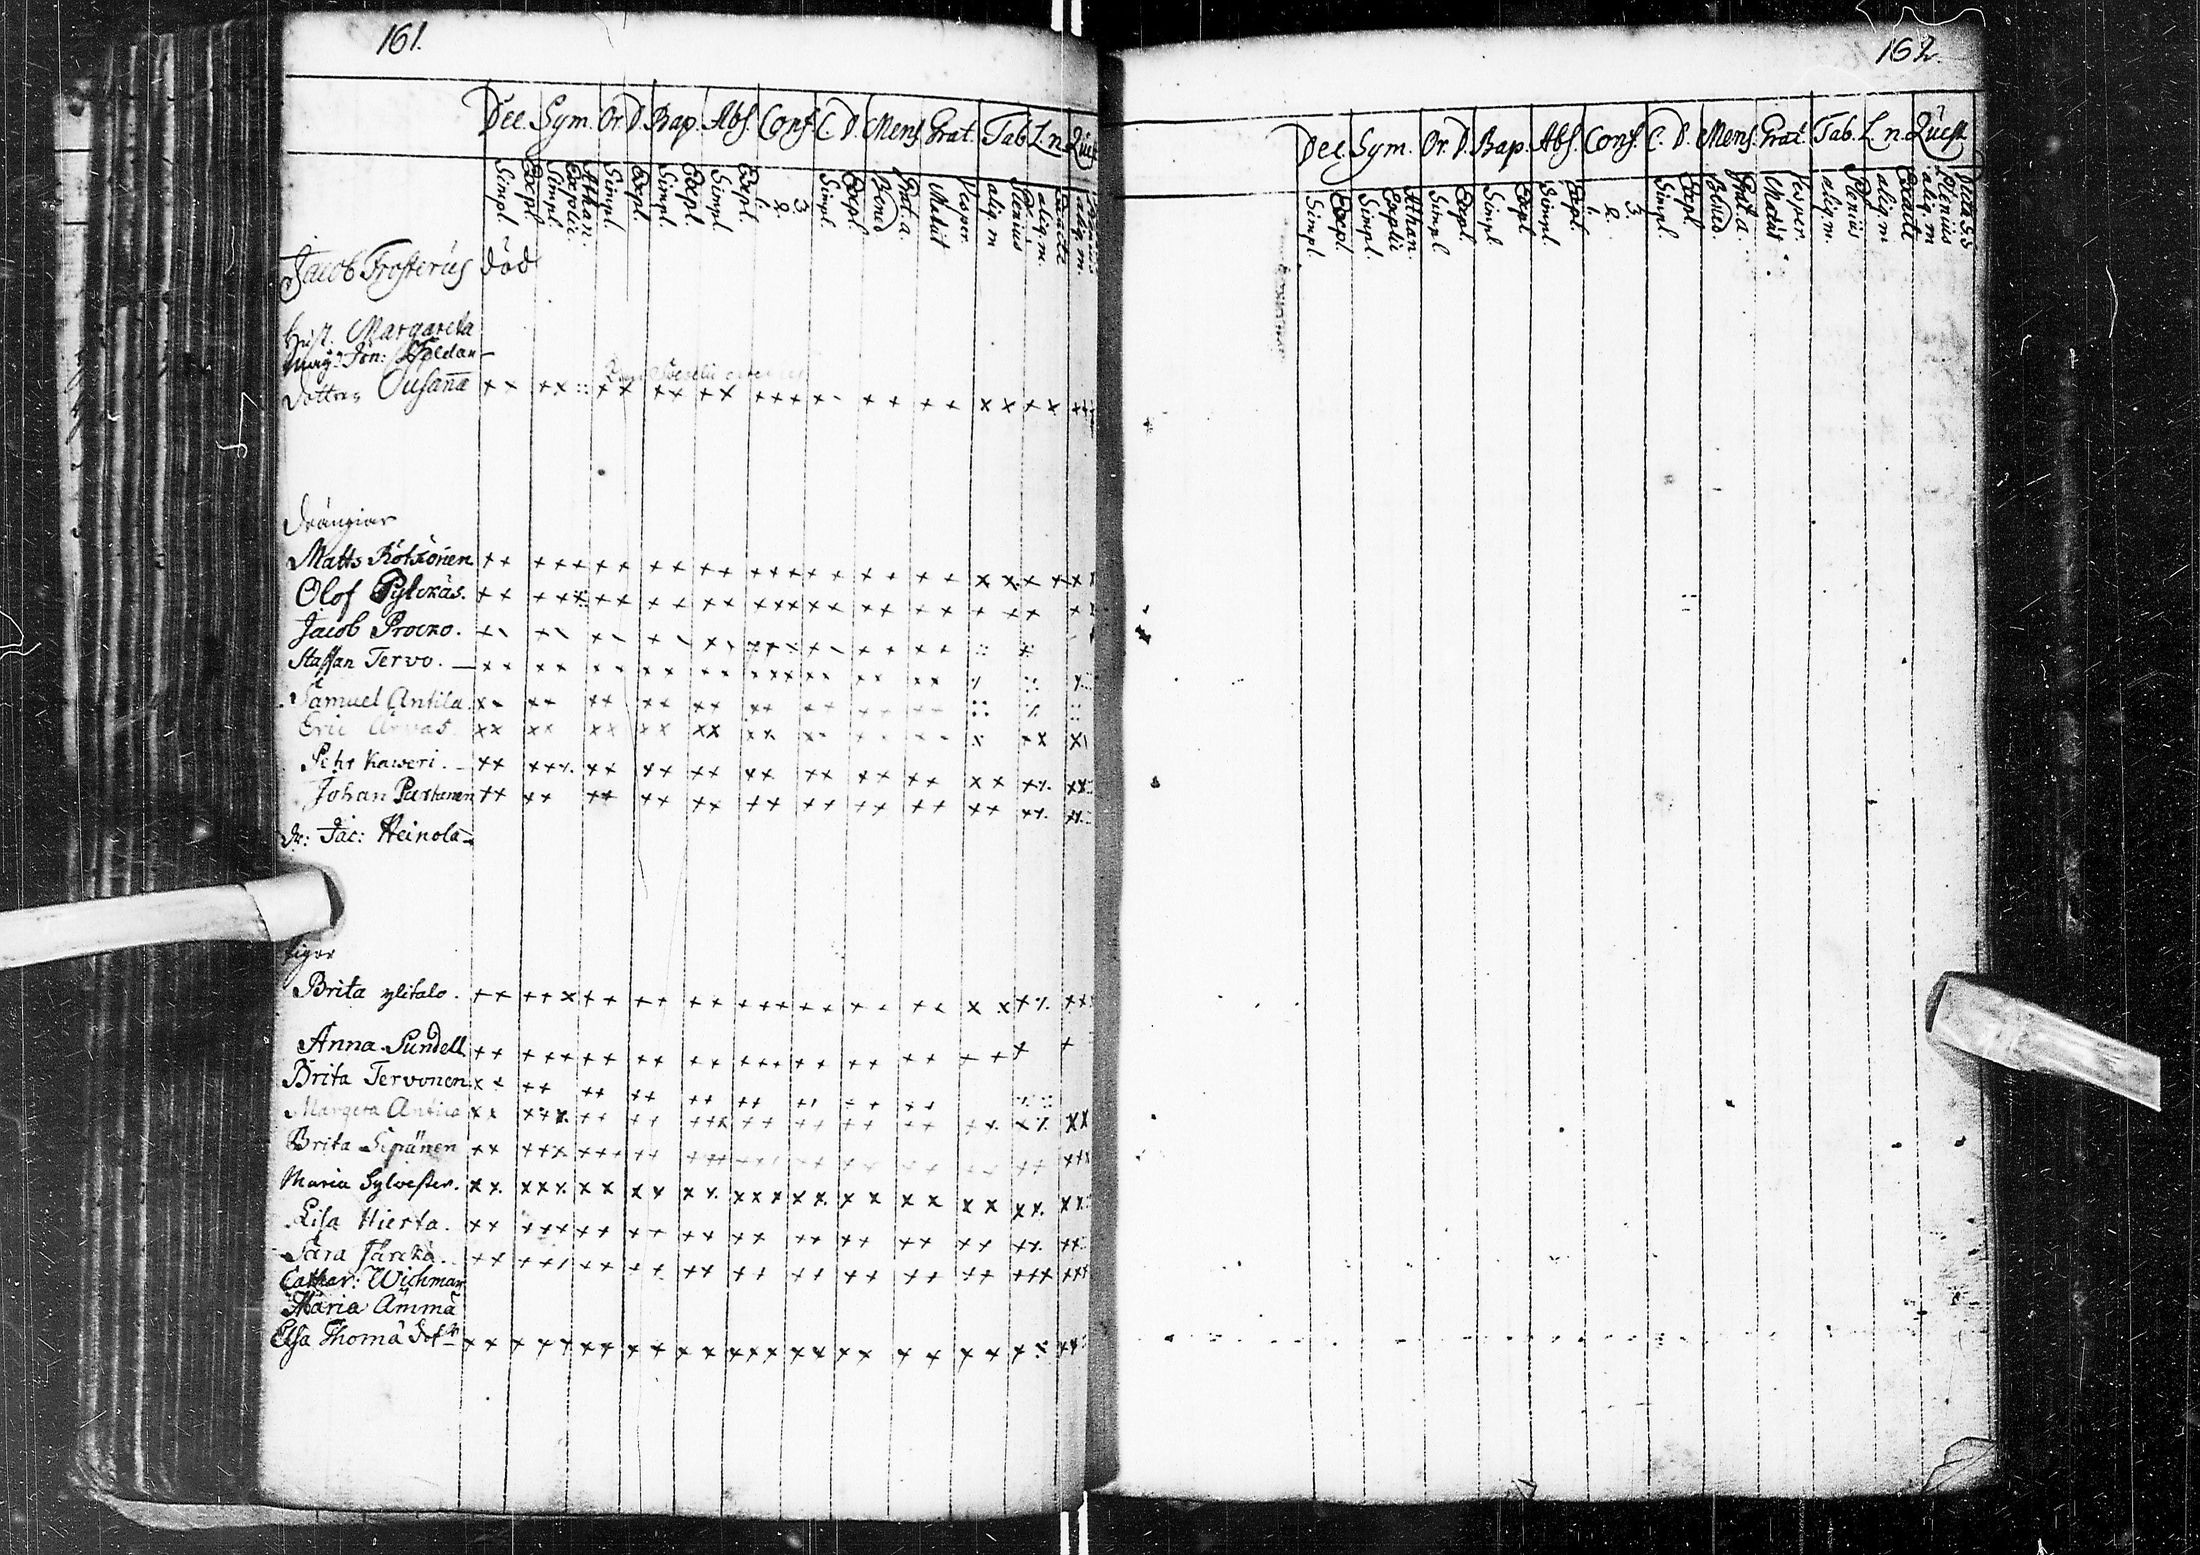 161.
Dec. Sym. Or. D. Bap. Abs. Conf. C. D. Mens. Grat. Tab. L. n. Quest
Simpl. Expl. Simpl. Explic. Athan. Simpl. Expl. Simpl. Expl. Simpl. Expl. 1. 2. 3. Simpl. Expl. Bened Grat. a. Matut Vesper. aliq. m Plenius aliq. m. Exacte aliq. m.
Jacob Frosterus död
Hust. Margareta
Dottren Susana
Drängiar
Matts
Olof Pylckäs.
Jacob Procko.
Staffan Tervo.
Samuel Antila
Eric
Pehr Kaweri.
Johan Partanen
Dr: Jac: Heinola
Pigor
Brita ylitalo.
Anna Sundell
Brita Tervonen
Margeta
Brita
Maria Sylvester.
Lisa Hierta.
Sara
Cathar: Wichman
Maria Ämmä
Elsa Thomä dotr
162.
Dec. Sym. Or. D. Bap. Abs. Conf. C. D. Mens. Grat. Tab. L. n. Quest
Simpl. Expl. Simpl. Explic Athan. Simpl Expl. Simpl. Expl Simpl. Expl. 1. 2. 3 Simpl. Expl Bened. Grat. a. Matut Vesper. aliq m. Plenius aliq m Exacte aliq. m Plenius Dicta S.S